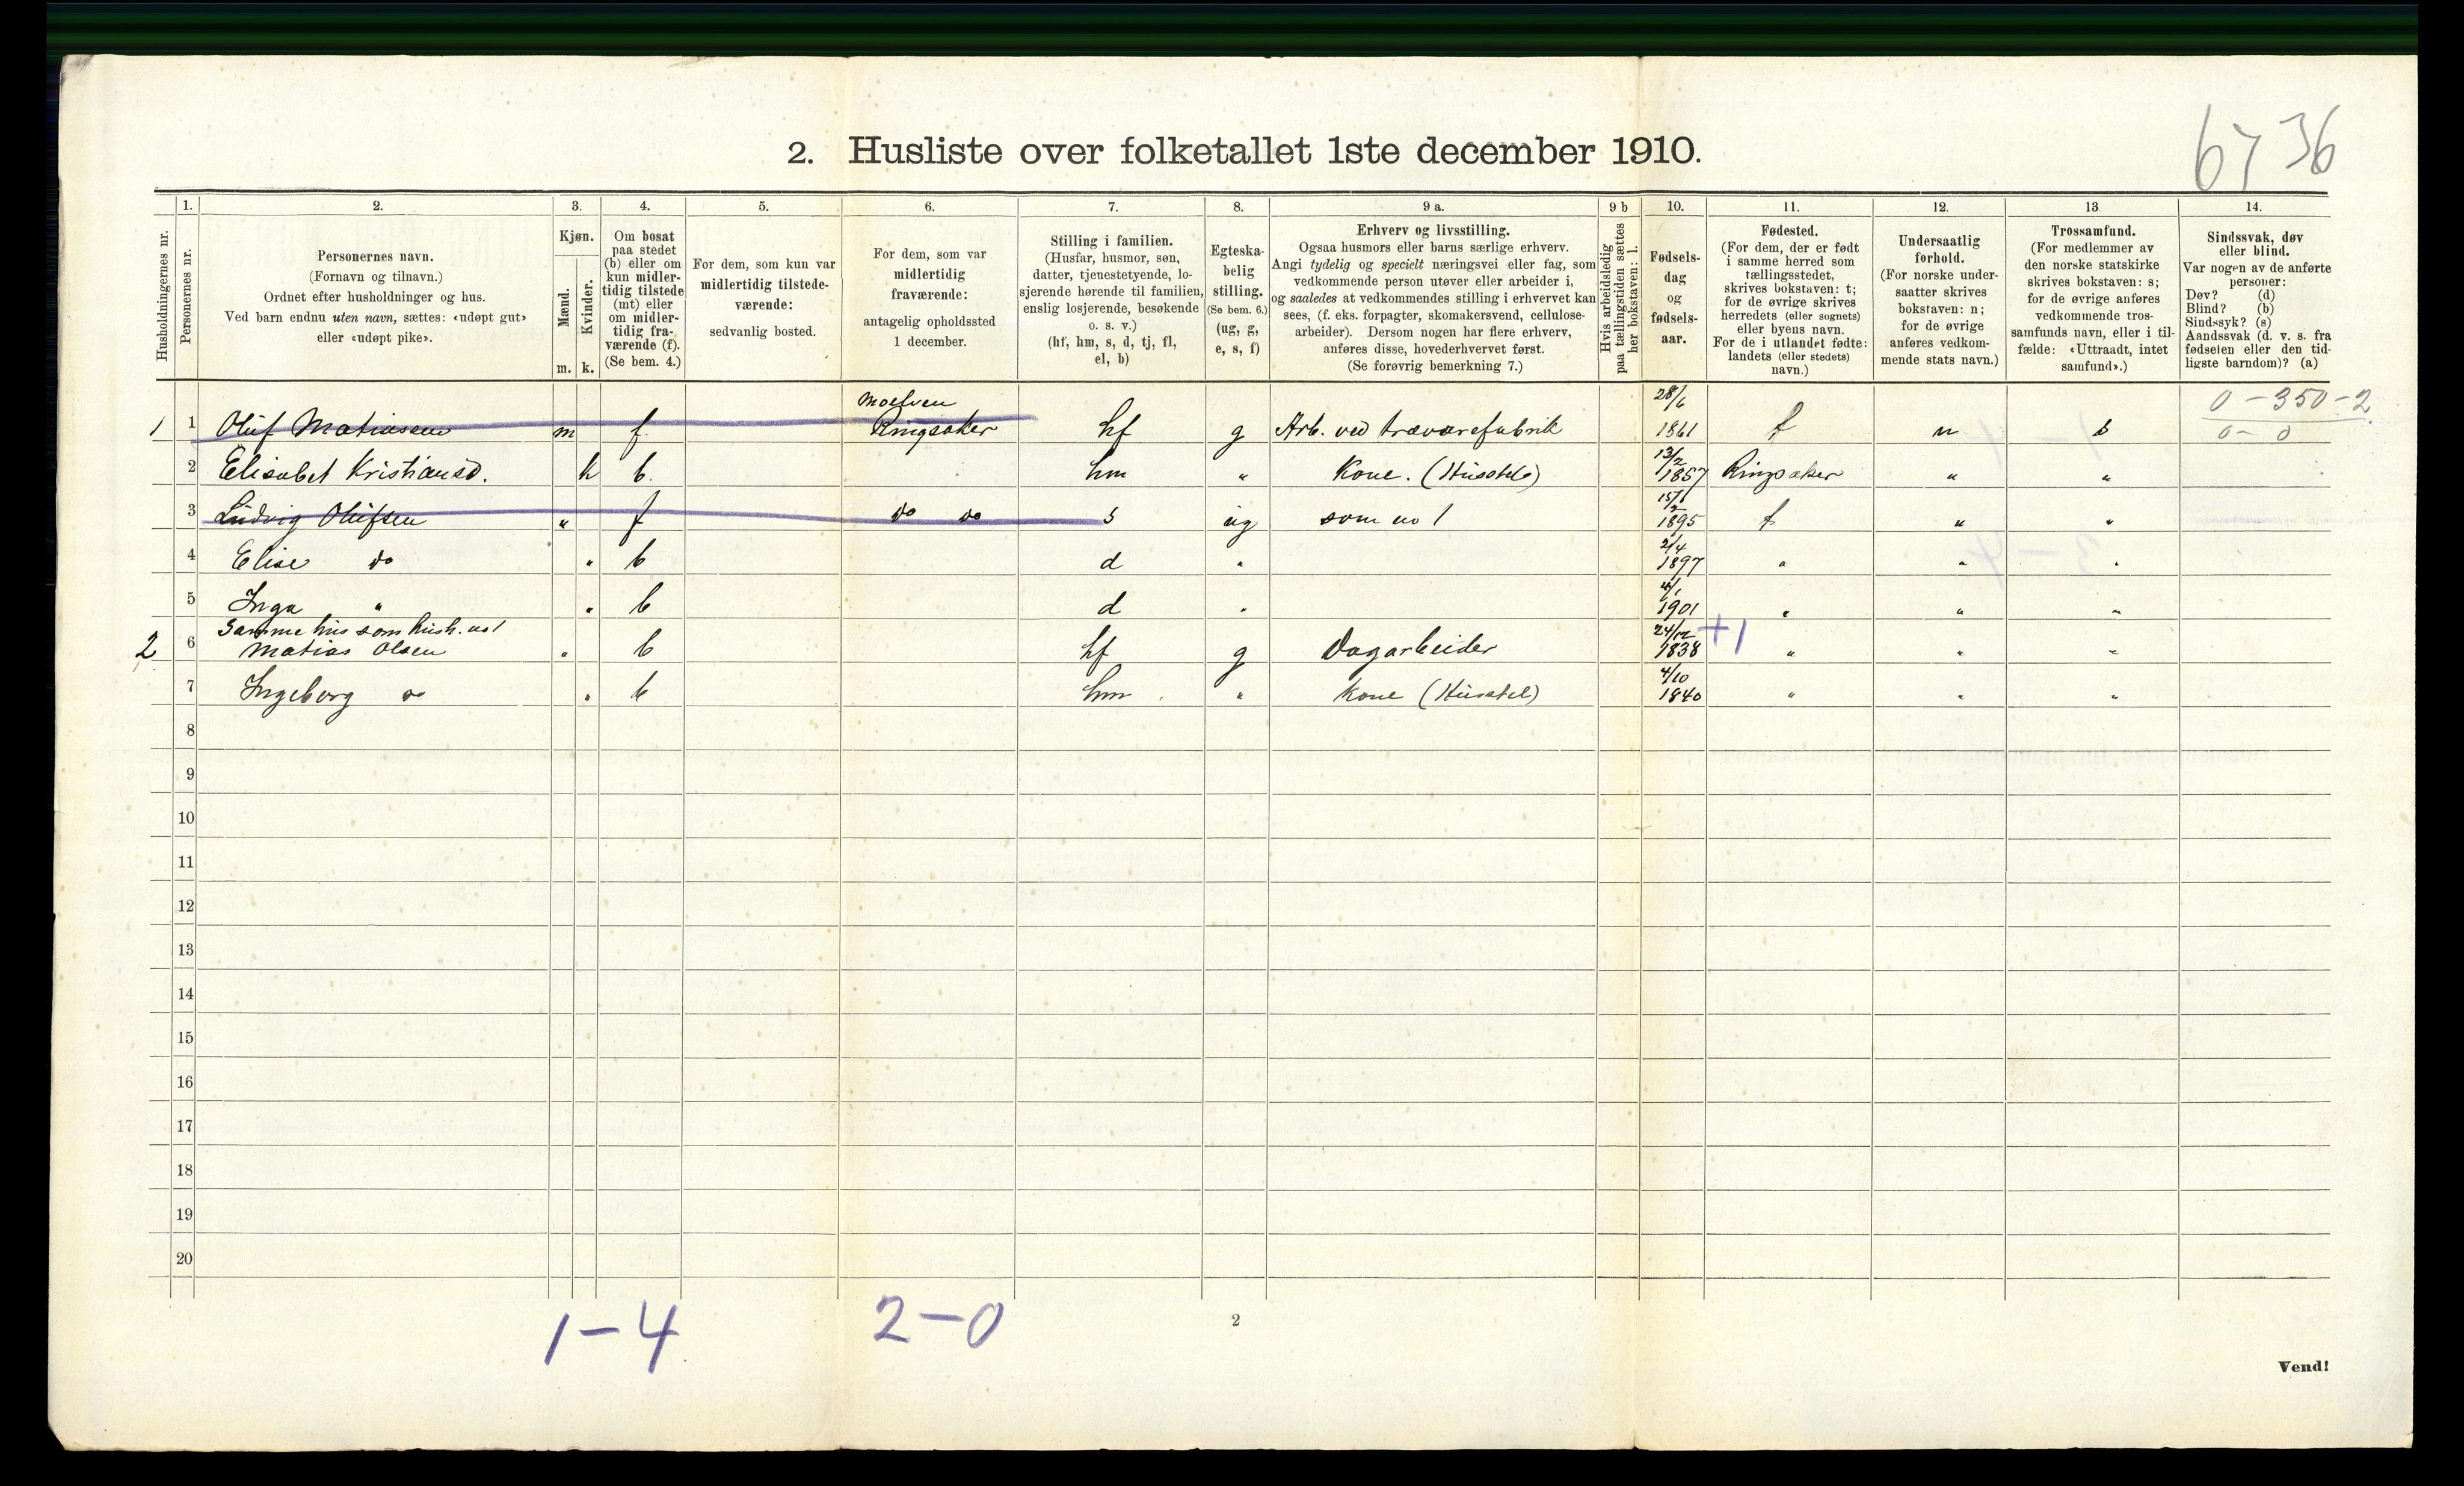 67 36
2. Husliste over folketallet 1ste december 1910.
Husholdningernes nr.
1.
Personernes nr.
2.
Personernes navn.
(Fornavn og tilnavn.)
Ordnet efter husholdninger og hus.
Ved barn endnu uten navn, sættes: «udøpt gut»
eller «udøpt pike».
3.
Kjøn.
Mænd.
Kvinder.
m. k.
4.
Om bosat
paa stedet
(b) eller om
kun midler-
tidig tilstede
(mt) eller
om midler-
tidig fra-
værende (f).
(Se bem. 4.)
5.
For dem, som kun var
midlertidig tilstede-
værende:
sedvanlig bosted.
6.
For dem, som var
midlertidig
fraværende:
antagelig opholdssted
1 december.
7.
Stilling i familien.
(Husfar, husmor, søn,
datter, tjenestetyende, lo-
sjerende hørende til familien,
enslig losjerende, besøkende
o. s. v.)
(hf, hm, s, d, tj, fl,
el, b)
8.
Egteska-
belig
stilling.
(Se bem. 6.)
(ug, g,
e, s, f)
9 a.
Erhverv og livsstilling.
Ogsaa husmors eller barns særlige erhverv.
Angi tydelig og specielt næringsvei eller fag, som
vedkommende person utøver eller arbeider i,
og saaledes at vedkommendes stilling i erhvervet kan
sees, (f. eks. forpagter, skomakersvend, cellulose-
arbeider). Dersom nogen har flere erhverv,
anføres disse, hovederhvervet først.
(Se forøvrig bemerkning 7.)
9 b
Hvis arbeidsledig
paa tællingstiden sættes
her bokstaven: l.
10.
Fødsels-
dag
og
fødsels-
aar.
11.
Fødested.
(For dem, der er født
i samme herred som
tællingsstedet,
skrives bokstaven: t;
for de øvrige skrives
herredets (eller sognets)
eller byens navn.
For de i utlandet fødte:
landets (eller stedets)
navn.)
12.
Undersaatlig
forhold.
(For norske under-
saatter skrives
bokstaven: n;
for de øvrige
anføres vedkom-
mende stats navn.)
13.
Trossamfund.
(For medlemmer av
den norske statskirke
skrives bokstaven: s;
for de øvrige anføres
vedkommende tros-
samfunds navn, eller i til-
fælde: «Uttraadt, intet
samfund».)
14.
Sindssvak, døv
eller blind.
Var nogen av de anførte
personer:
Døv? (d)
Blind? (b)
Sindssyk? (s)
Aandssvak (d. v. s. fra
fødselen eller den tid-
ligste barndom)? (a)
Moelven 28/6 0 - 350 - 2
1 1 Oluf Matiassen m f. Ringsaker hf g Arb. ved trævarefabrik 1861 t n s 0 - 0
13/2
2 Elisabet Kristiansd. k b. hm " Kone. (Husstel) 1857 Ringsaker " "
15/2
3 Ludvig Olufsen " f do do s ug som no 1 1895 t " "
2/4
4 Elise do " b d " 1897 " " "
4/1
5 Inga " " b d " 1901 " " "
Samme hus som hush. no 1 24/12 +1
2 6 Matias Olsen " b hf g Dagarbeider 1838 " " "
4/10
7 Ingeborg do " b hm " Kone (Husstel) 1840 " " "
8
9
10
11
12
13
14
15
16
17
18
19
20
1 - 4 2 - 0
2
Vend!